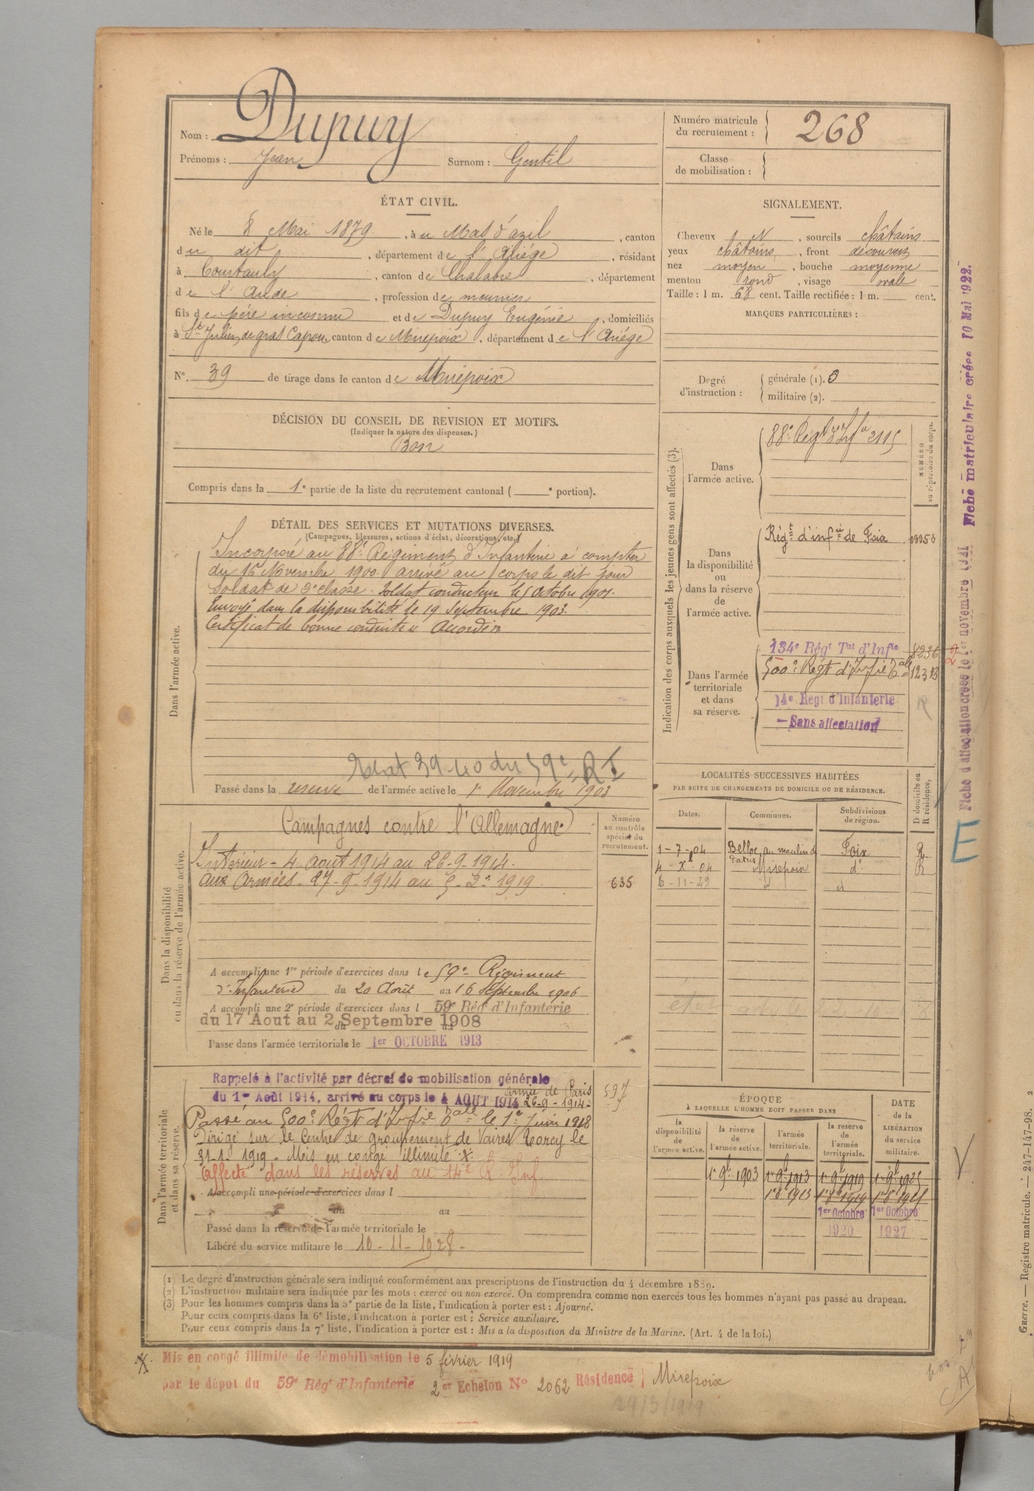 Nom : Dupuy
Prénoms : Jean Surnom : Gentil
Numéro matricule du recrutement : 268
Classe de mobilisation :
ÉTAT CIVIL.
Né le 8 Mai 1879, à u Mas d'azil, canton
d u dit, département de l'Ariége, résidant
à Courtauly, canton de Chalabre, département
d e l'Aude, profession de meunier
fils de père inconnu et de Dupuy Eugénie, domiciliés
à St Julien de gras Capou canton de Mirepoix, département de l'Ariége
N° 39 de tirage dans le canton de Mirepoix
SIGNALEMENT.
Cheveux, sourcils châtains
yeux châtains, front découvert
nez moyen, bouche moyenne
menton rond, visage ovale
Taille : 1 m. 68 cent. Taille rectifiée : 1 m. cent.
MARQUES PARTICULIÈRES :
Degré d'instruction : générale (1). 3
militaire (2).
DÉCISION DU CONSEIL DE REVISION ET MOTIFS.
(Indiquer la nature des dispenses.)
Bon
Compris dans la 1e partie de la liste du recrutement cantonal ( e portion).
DÉTAIL DES SERVICES ET MUTATIONS DIVERSES.
(Campagnes, blessures, actions d'éclat, décorations, etc.)
Dans l'armée active.
Incorporé au 88e Régiment d'Infanterie à compter
du 16 Novembre 1900 arrivé au corps le dit jour
soldat de 2e classe. Soldat conducteur le 5 octobre 1901.
Envoyé dans la disponibilité le 19 Septembre 1903.
Certificat de bonne conduite "Accordé"
59e R I
Passé dans la reserve de l'armée active le 1er Novembre 1903
Indication des corps auxquels les jeunes gens sont affectés (3).
NUMÉRO au répertoire du corps.
Dans l'armée active.
88e Régt d'Infie 2115
Dans la disponibilité ou dans la réserve de l'armée active.
Régt d'infie de Foix
Dans l'armée territoriale et dans sa réserve.
134e Régt Tal d'Infie
500e Régt d'Infie Tale 12313
14e Regt d'Infanterie
— Sans affectation
LOCALITÉS SUCCESSIVES HABITÉES
PAR SUITE DE CHANGEMENTS DE DOMICILE OU DE RÉSIDENCE.
Dates. Communes. Subdivisions de région. D domicile ou R résidence.
1-7-04 Belloc, au moulin de Foix R
4-X-04 Mirepoix d° R
6-11-23 " d
Dans la disponibilité ou dans la réserve de l'armée active.
Campagnes contre l'Allemagne
Numéro au contrôle spécial du recrutement.
Intérieur - 4 août 1914 au 26-9-1914.
aux Armées. 27-9-1914 au 1919.
635
A accompli une 1re période d'exercices dans le 59e Régiment
d'Infanterie du 20 Août au 16 Septembre 1906
A accompli une 2e période d'exercices dans l 59e Rég d'Infanterie
du 17 Aout au 2 Septembre 1908
Passé dans l'armée territoriale le 1er OCTOBRE 1913
Dans l'armée territoriale et dans sa réserve.
Rappelé à l'activité par décret de mobilisation générale
du 1er Août 1914, arrivé au corps le 4 AOUT 1914 armée de Paris 26-9-1914-
597
Passé au 500e Régt d'Infie Tale le 1er Juin 1918
Dirigé sur le Centre de groupement de Vaires Torcy le
31-1-1919 - Mis en congé illimité X
Affecté dans les réserves au 14e R. Inf.
A accompli une période d'exercices dans l
du au
Passé dans la réserve de l'armée territoriale le
Libéré du service militaire le 10-11-1928-
ÉPOQUE
À LAQUELLE L'HOMME DOIT PASSER DANS
DATE de la LIBÉRATION du service militaire.
la disponibilité de l'armée active. la réserve de l'armée active. l'armée territoriale. la réserve de l'armée territoriale.
1er 9bre 1903 1er 9bre 1913 1er 9bre 1919 1er 9bre 1925
1er 8bre 1913 1er 8bre 1919 1er 8bre 1925
1er Octobre 1920 1er Octobre 1927
(1) Le degré d'instruction générale sera indiqué conformément aux prescriptions de l'instruction du 4 décembre 1889.
(2) L'instruction militaire sera indiquée par les mots : exercé ou non exercé. On comprendra comme non exercés tous les hommes n'ayant pas passé au drapeau.
(3) Pour les hommes compris dans la 5e partie de la liste, l'indication à porter est : Ajourné.
Pour ceux compris dans la 6e liste, l'indication à porter est : Service auxiliaire.
Pour ceux compris dans la 7e liste, l'indication à porter est : Mis à la disposition du Ministre de la Marine. (Art. 4 de la loi.)
X Mis en congé illimité de démobilisation le 5 février 1919
par le dépôt du 59e Rég d'Infanterie 2er Echelon N° 2062 Résidence Mirepoix
29/3/1919
Fiche d'affectation créée le 1er novembre 1921 Fiche matriculaire créée 10 Mai 1922.
E
Guerre. — Registre matricule. — 247-147-98.